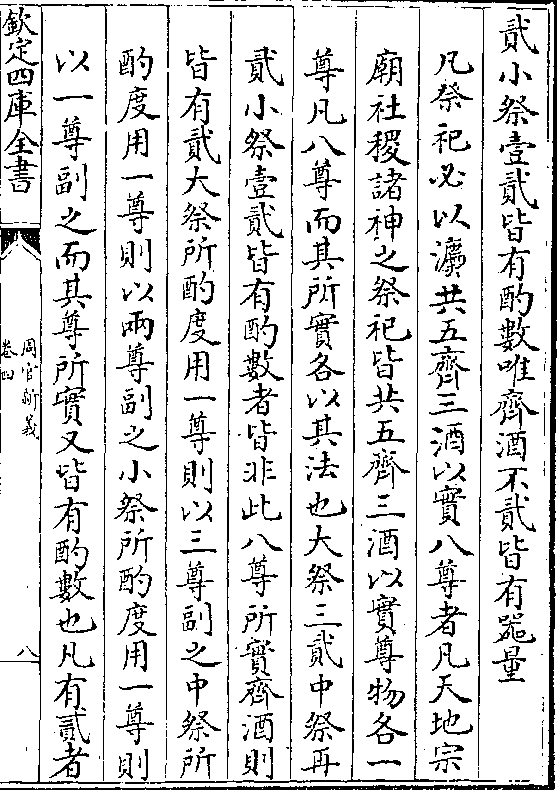 貳小祭壹貳皆有酌數唯齊酒不貳皆有器量
凡祭祀必以灋共五齊三酒以實八尊者凡天地宗
廟社稷諸神之祭祀皆共五齊三酒以實尊物各一
尊凡八尊而其所實各以其法也大祭三貳中祭再
貳小祭壹貳皆有酌數者皆非此八尊所實齊酒則
皆有貳大祭所酌度用一尊則以三尊副之中祭所
酌度用一尊則以兩尊副之小祭所酌度用一尊則
以一尊副之而其尊所實又皆有酌數也凡有貳者
欽定四庫全書
周官新義
卷四
八